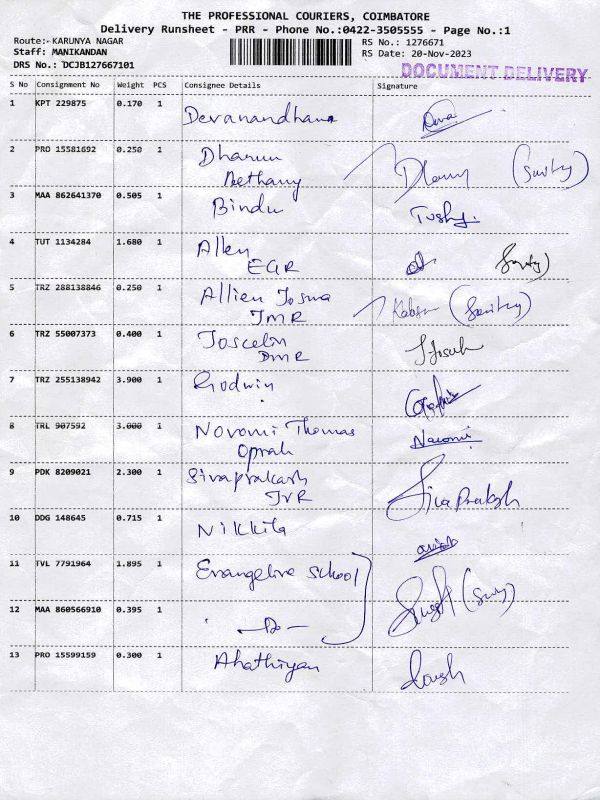 THE PROFESSIONAL COURIERS, COIMBATORE
Delivery Runsheet - PRR - Phone No.:0422-3505555 - Page No.:1
Route:- KARUNYA NAGAR
Staff: MANIKANDAN
DRS No.: DCJB127667101
RS No.: 1276671
RS Date: 20-Nov-2023
DOCUMENT DELIVERY
S No Consignment No Weight PCS Consignee Details Signature
1 KPT 229875 0.170 1 Devanandhana Deva
2 PRO 15581692 0.250 1 Dharun
Bethany
3 MAA 862641370 0.505 1 Bindu Tushy.
4 TUT 1134284 1.680 1 Allen
EGR
5 TRZ 288138846 0.250 1 Allien Josma
JMR
6 TRZ 55007373 0.400 1 Joscelin
DMR
7 TRZ 255138942 3.900 1 Godwin
8 TRL 907592 3.000 1 Novomi Thomas Naomi
Oprah
9 PDK 8209021 2.300 1 Sivaprakash SivaPrakash
JVR
10 DDG 148645 0.715 1 Nikkila
11 TVL 7791964 1.895 1 Evangeline School
12 MAA 860566910 0.395 1 - Do -
13 PRO 15599159 0.300 1 Ahathiyan